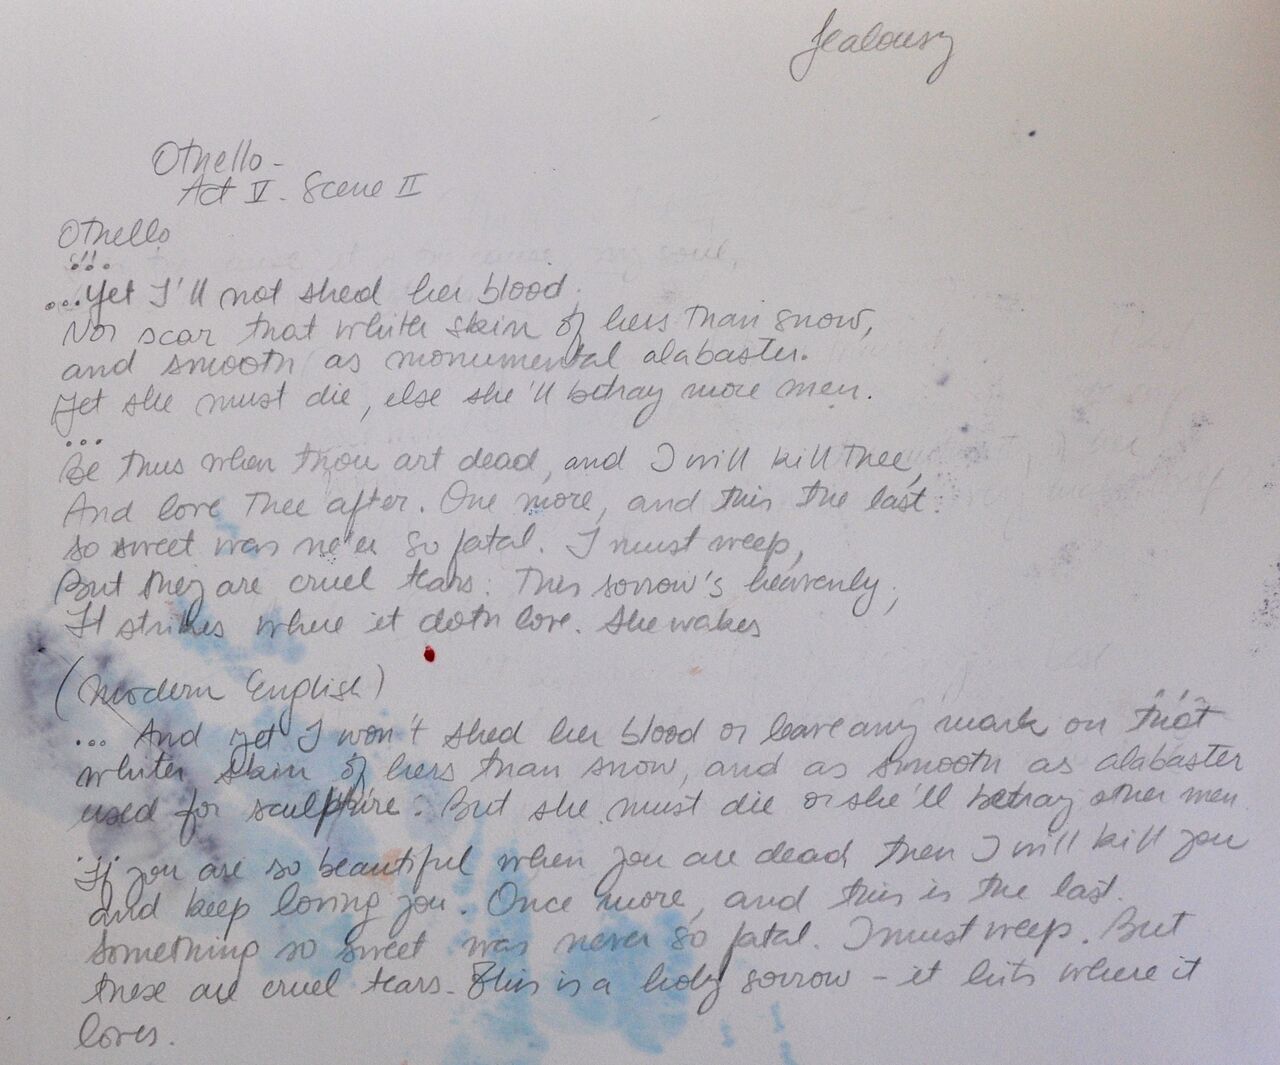 Jealousy
Othello -
Act V. Scene II
Othello
...
...Yet I'll not shed her blood.
Nor scar that whiter skin of hers than snow,
and smooth as monumental alabaster.
Yet she must die, else she'll betray more men.
...
Be thus when thou art dead, and I will kill thee,
And love thee after. One more, and this the last.
So sweet was ne'er so fatal. I must weep,
But they are cruel tears. This sorrow's heavenly;
It strikes where it doth love. She wakes
(Modern English)
... And yet I won't shed her blood or leave any mark on that
whiter skin of hers than snow, and as smooth as alabaster
used for sculpture. But she must die or she'll betray other men
If you are so beautiful when you are dead then I will kill you
and keep loving you. Once more, and this is the last.
Something so sweet was never so fatal. I must weep. But
these are cruel tears. This is a holy sorrow - it hits where it
loves.